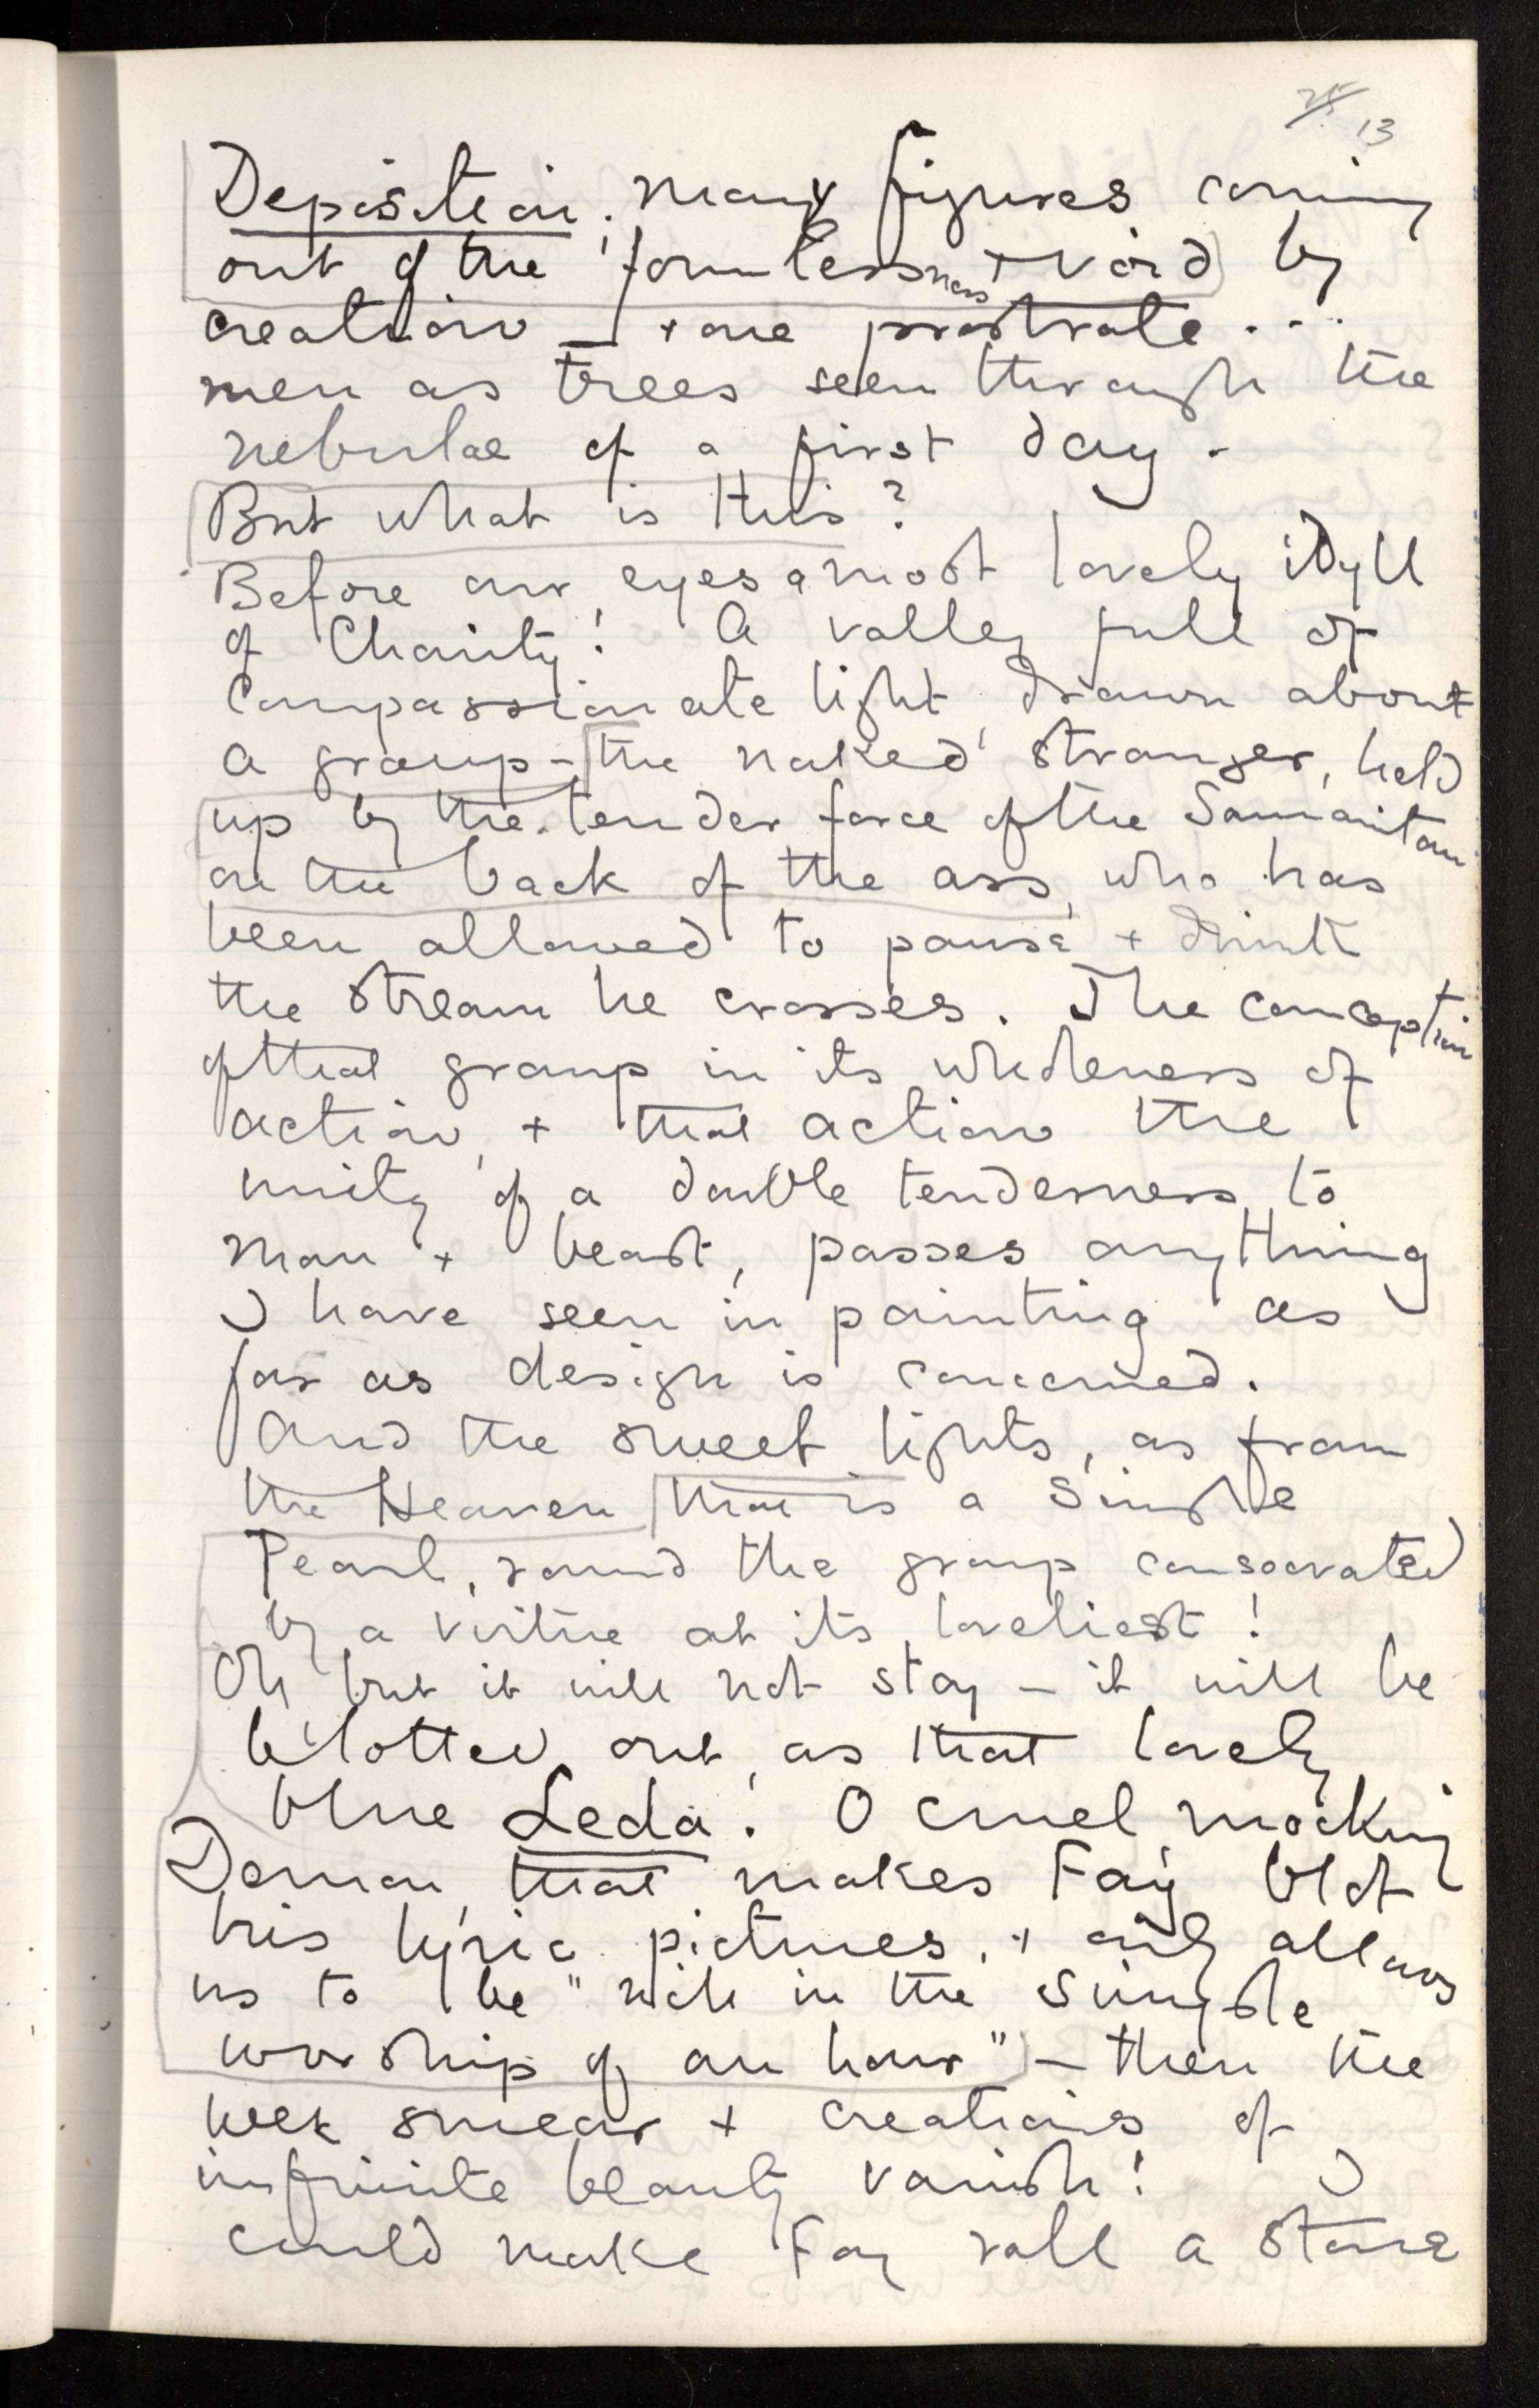 25 13
Deposition, many figures coming
out of the formlessness + void by
creation — + one prostrate . . .
men as trees seen through the
nebulae of a first day .
But what is this?
Before our eyes a most lovely idyll
of Charity! A valley full of
Compassionate light, drawn about
a group — the naked stranger, held
up by the tender force of the Samaritan
on the back of the ass, who has
been allowed to pause + drink
the stream he crosses. The conception
of that group in its wholeness of
action, + that action the
unity of a double tenderness to
man + beast, passes anything
I have seen in painting as
far as design is concerned.
And the sweet lights, as from
the Heaven that is a Single
Pearl, round the group consecrated
by a virtue at its loveliest!
Oh but it will not stay — it will be
blotted out, as that lovely
blue Leda! O cruel mocking
Demon, that makes Fay blot
his lyric pictures, + only allows
us to be "rich in the simple
worship of an hour" — then the
wek smear + creations of
infinite beauty vanish! I
could make Fay roll a stone